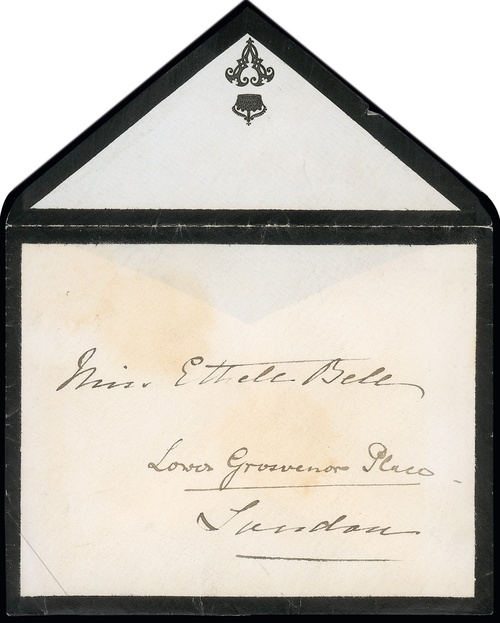 Miss. Ethell Bell
Lower Grosvenor Place
London